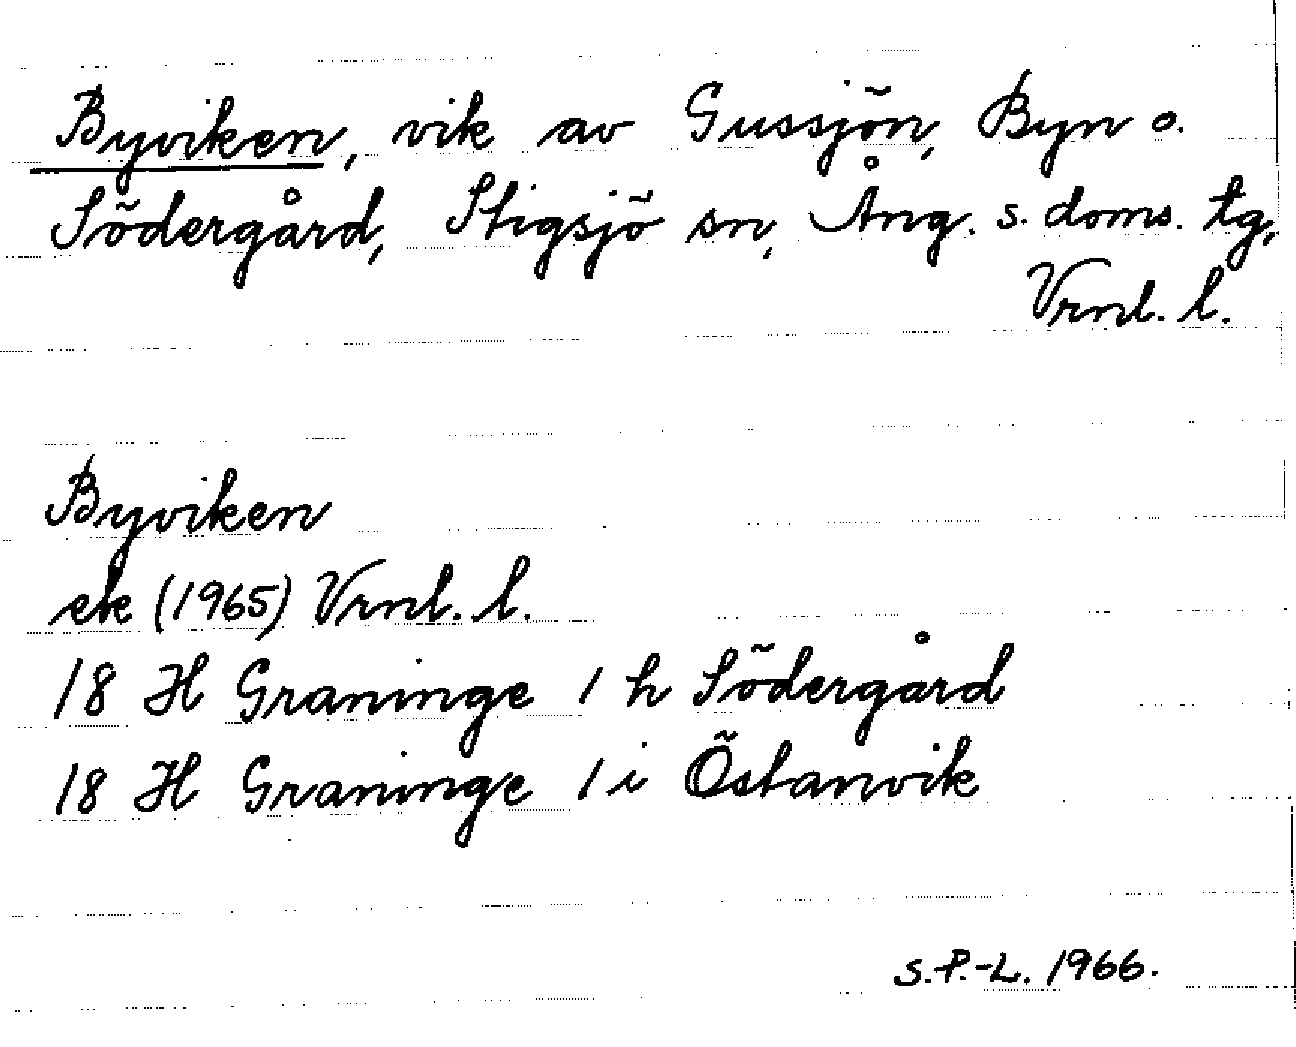 Byviken, vik av Gussjön, Byn o.
Södergård, Stigsjö sn, Ång. s. doms. tg,
Vrnl. l.
Byviken
ek (1965) Vrnl. l.
18 H Graninge 1 h Södergård
18 H Graninge 1 i Östanvik
S.P.-L. 1966.